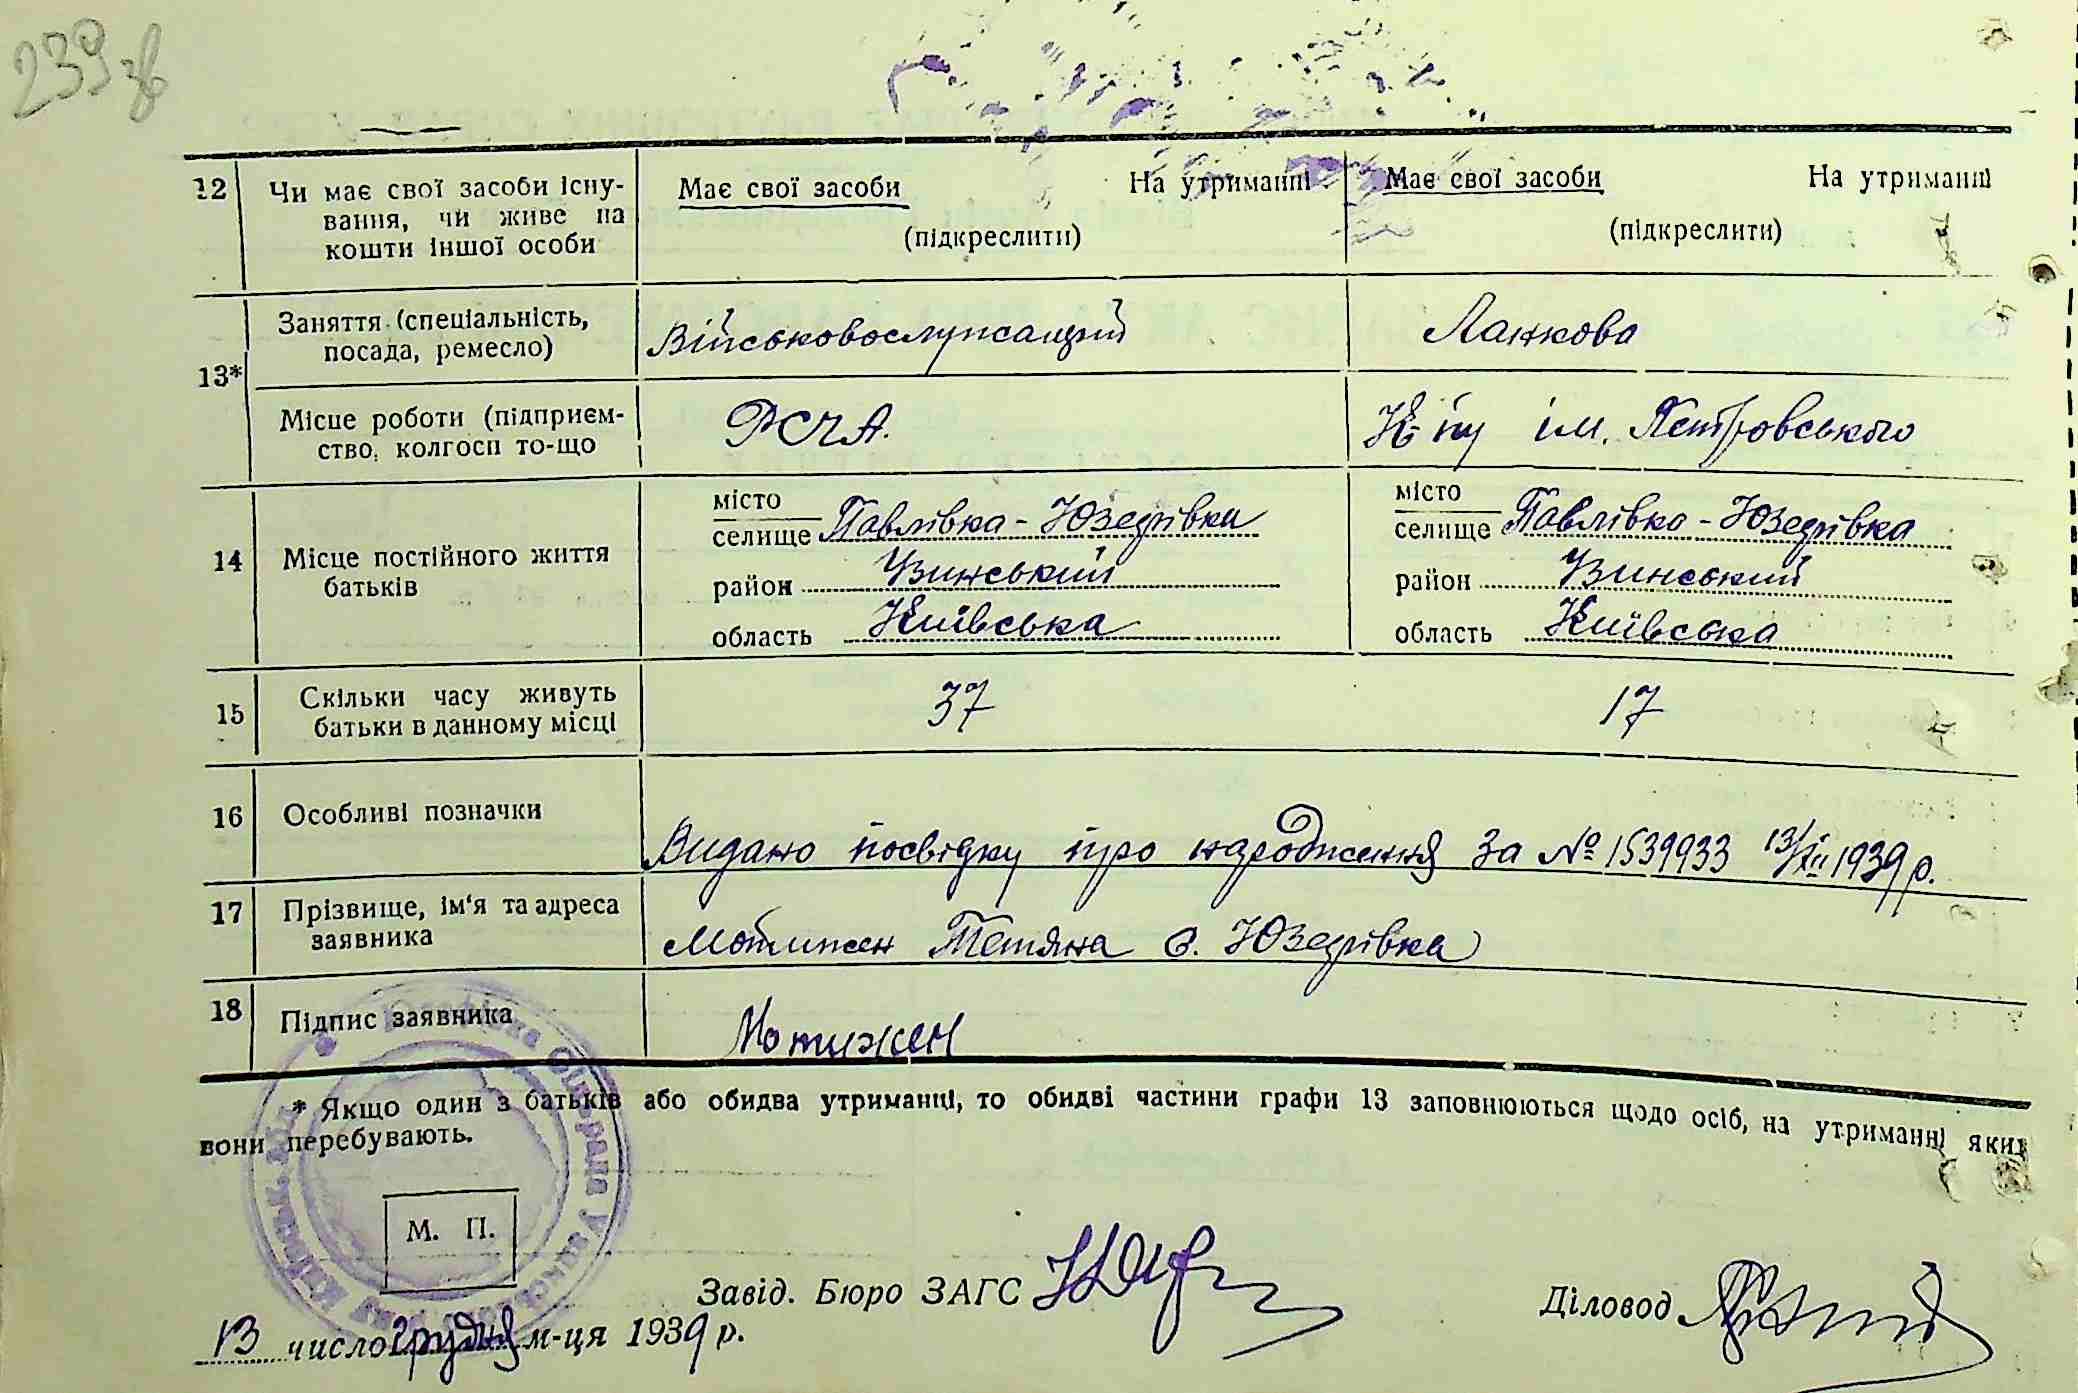 239 зв
12 Чи має свої засоби існу- Має свої засоби На утриманні Має свої засоби На утриманні
вання, чи живе на
кошти іншої особи (підкреслити) (підкреслити)
13* Заняття (спеціальність, Військовослужащий Ланкова
посада, ремесло)
Місце роботи (підприєм- РСЧА. К-пу ім. Петровського
ство, колгосп то-що
14 Місце постійного життя місто місто
батьків селище Павлівка-Юзефівка селище Павлівка-Юзефівка
район Узинський район Узинський
область Київська область Київська
15 Скільки часу живуть 37 17
батьки в данному місці
16 Особливі позначки
Видано посвідку про народження за № 1539933 13/XII 1939 р.
17 Прізвище, ім'я та адреса
заявника Мотижен Тетяна с. Юзефівка
18 Підпис заявника Мотижен
* Якщо один з батьків або обидва утриманці, то обидві частини графи 13 заповнюються щодо осіб, на утриманні яких
вони перебувають.
М. П.
Завід. Бюро ЗАГС
Діловод
13 число грудня м-ця 1939 р.